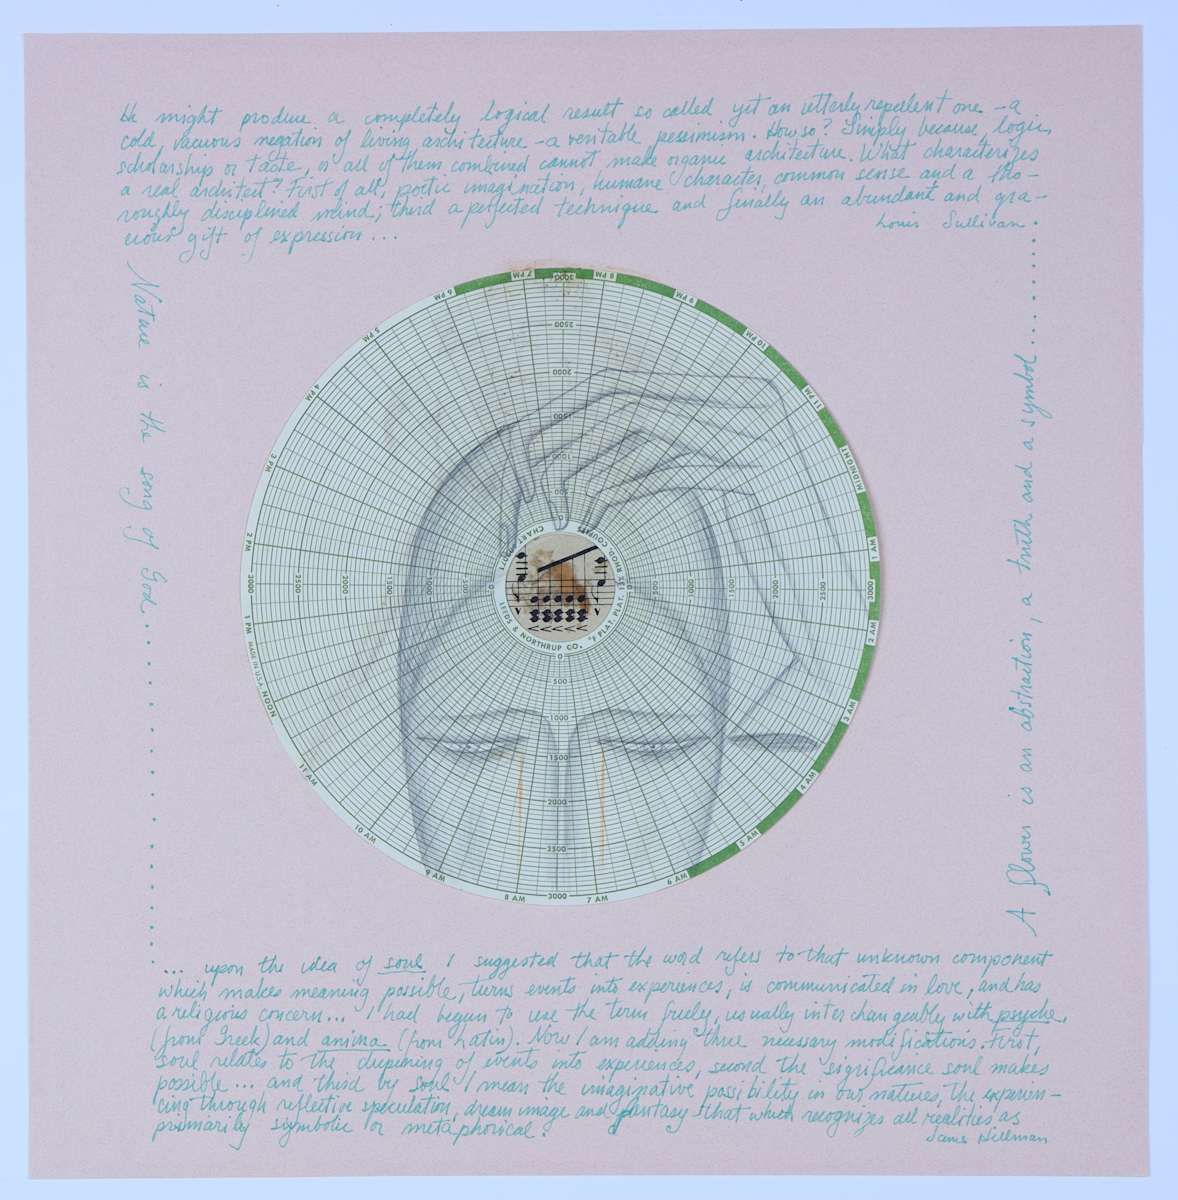 He might produce a completely logical result so called yet an utterly repellent one – a
cold, vacuous negation of living architecture – a veritable pessimism. How so? Simply because, logic,
scholarship or taste, or all of them combined cannot make organic architecture. What characterizes
a real architect? First of all, poetic imagination, humane character, common sense and a tho-
roughly disciplined mind; third a perfected technique and finally an abundant and gra-
cious gift of expression...
Louis Sullivan.
Nature is the song of God
A flower is an abstraction, a truth and a symbol
6 PM
7 PM
3000
8 PM
9 PM
10 PM
11 PM
MIDNIGHT
1 AM
3000
2 AM
3 AM
4 AM
5 AM
6 AM
7 AM
3000
8 AM
9 AM
10 AM
11 AM
NOON
MADE IN U.S.A.
1 PM
3000
2 PM
3 PM
4 PM
5 PM
2500
2000
1500
1000
500
0
0
500
1000
1500
2000
2500
0
500
1000
1500
2000
2500
0
1500
2000
2500
CHART
LEEDS & NORTHRUP CO.
°F PLAT. PLAT. 13% RHOD. COUPLES
... upon the idea of soul I suggested that the word refers to that unknown component
which makes meaning possible, turns events into experiences, is communicated in love, and has
a religious concern... I had begun to use the term freely, usually interchangeably with psyche,
(from Greek) and anima (from Latin). Now I am adding three necessary modifications. First,
soul relates to the deepening of events into experiences, second the significance soul makes
possible... and third by soul I mean the imaginative possibility in our natures, the experien-
cing through reflective speculation, dream image and fantasy – that which recognizes all realities as
primarily symbolic or metaphorical.
James Hillman